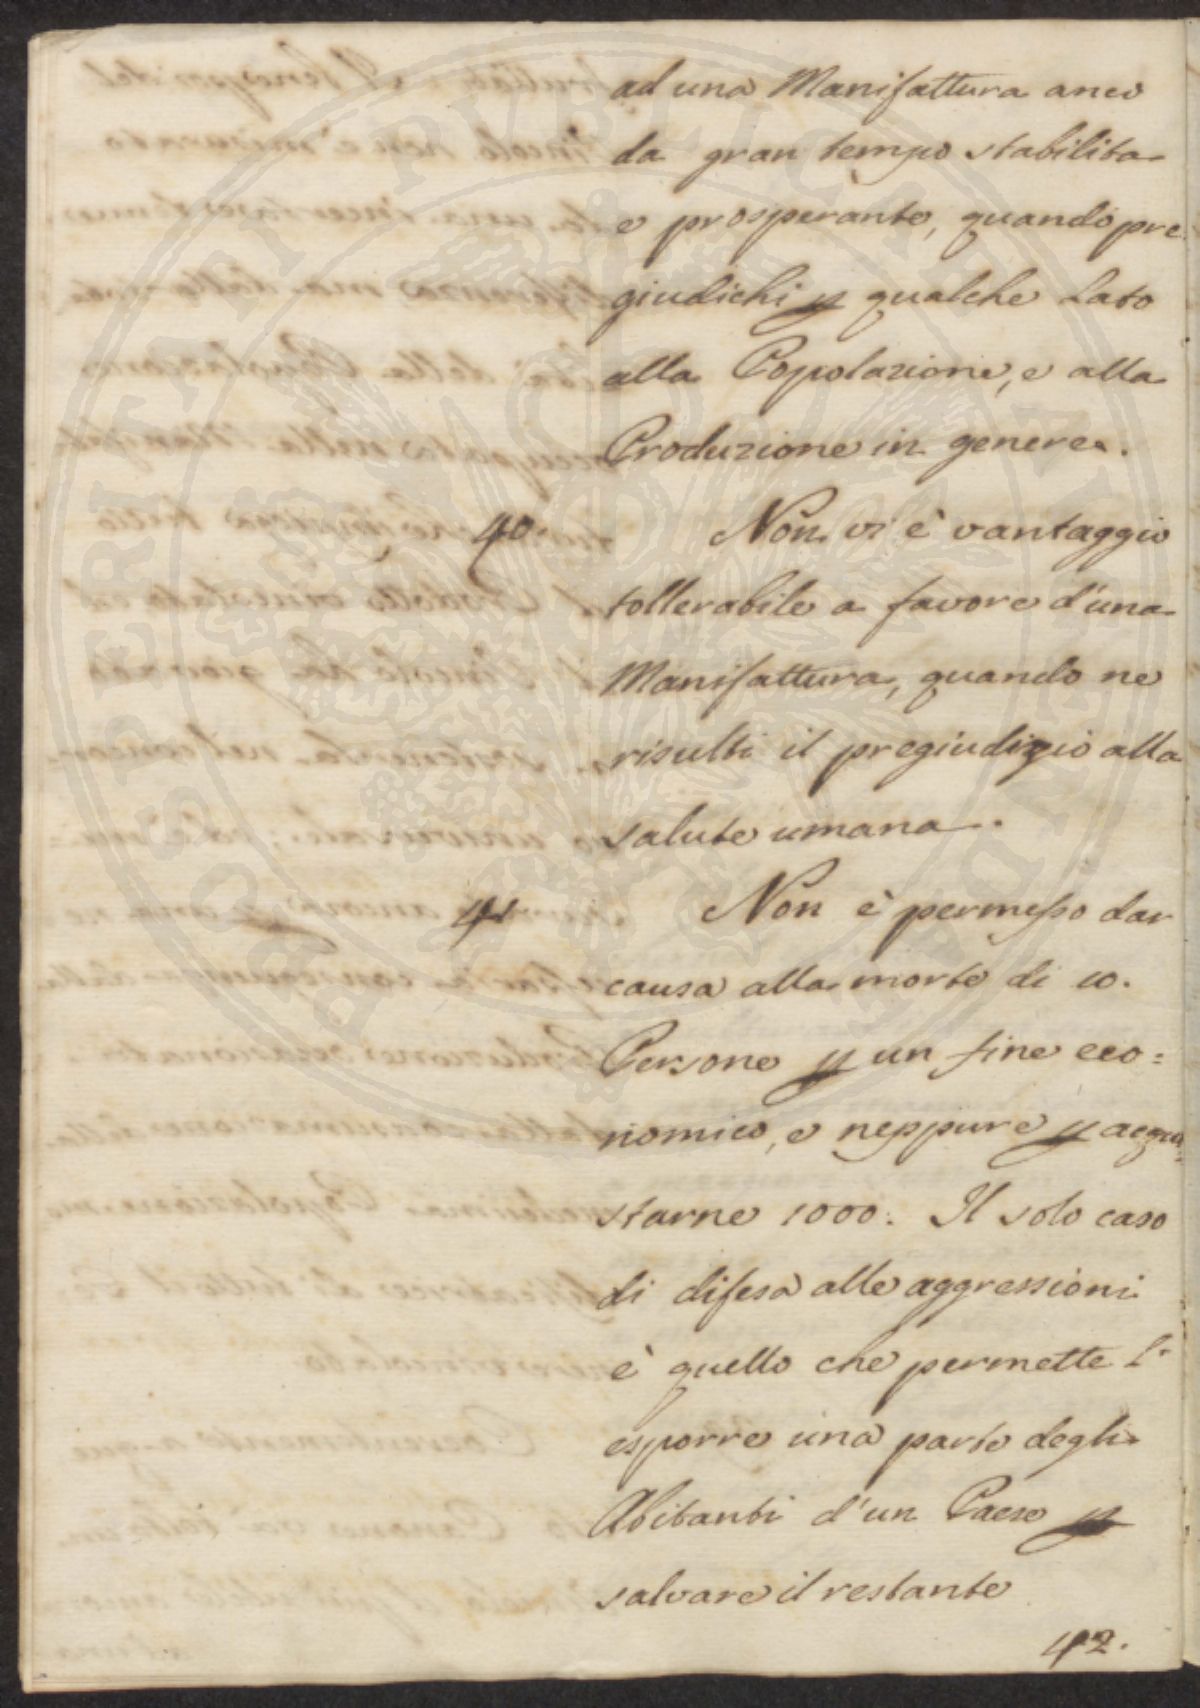 ad una Manifattura anco
da gran tempo stabilita
e prosperante, quando pre
giudichi p qualche Lato
alla Popolazione, e alla
Produzione in genere.
40. Non vi è vantaggio
tollerabile a favore d'una
Manifattura, quando ne
risulti il pregiudizio alla
salute umana.
41 Non è permesso dar
causa alla morte di 10.
Persone p un fine eco=
nomico, e neppure p acqui
starne 1000. Il solo caso
di difesa alle aggressioni
è quello che permette l'
esporre una parte degli
Abitanti d'un Paese p
salvare il restante
42.
PROSPERITATI PUBLICAE AUGENDAE